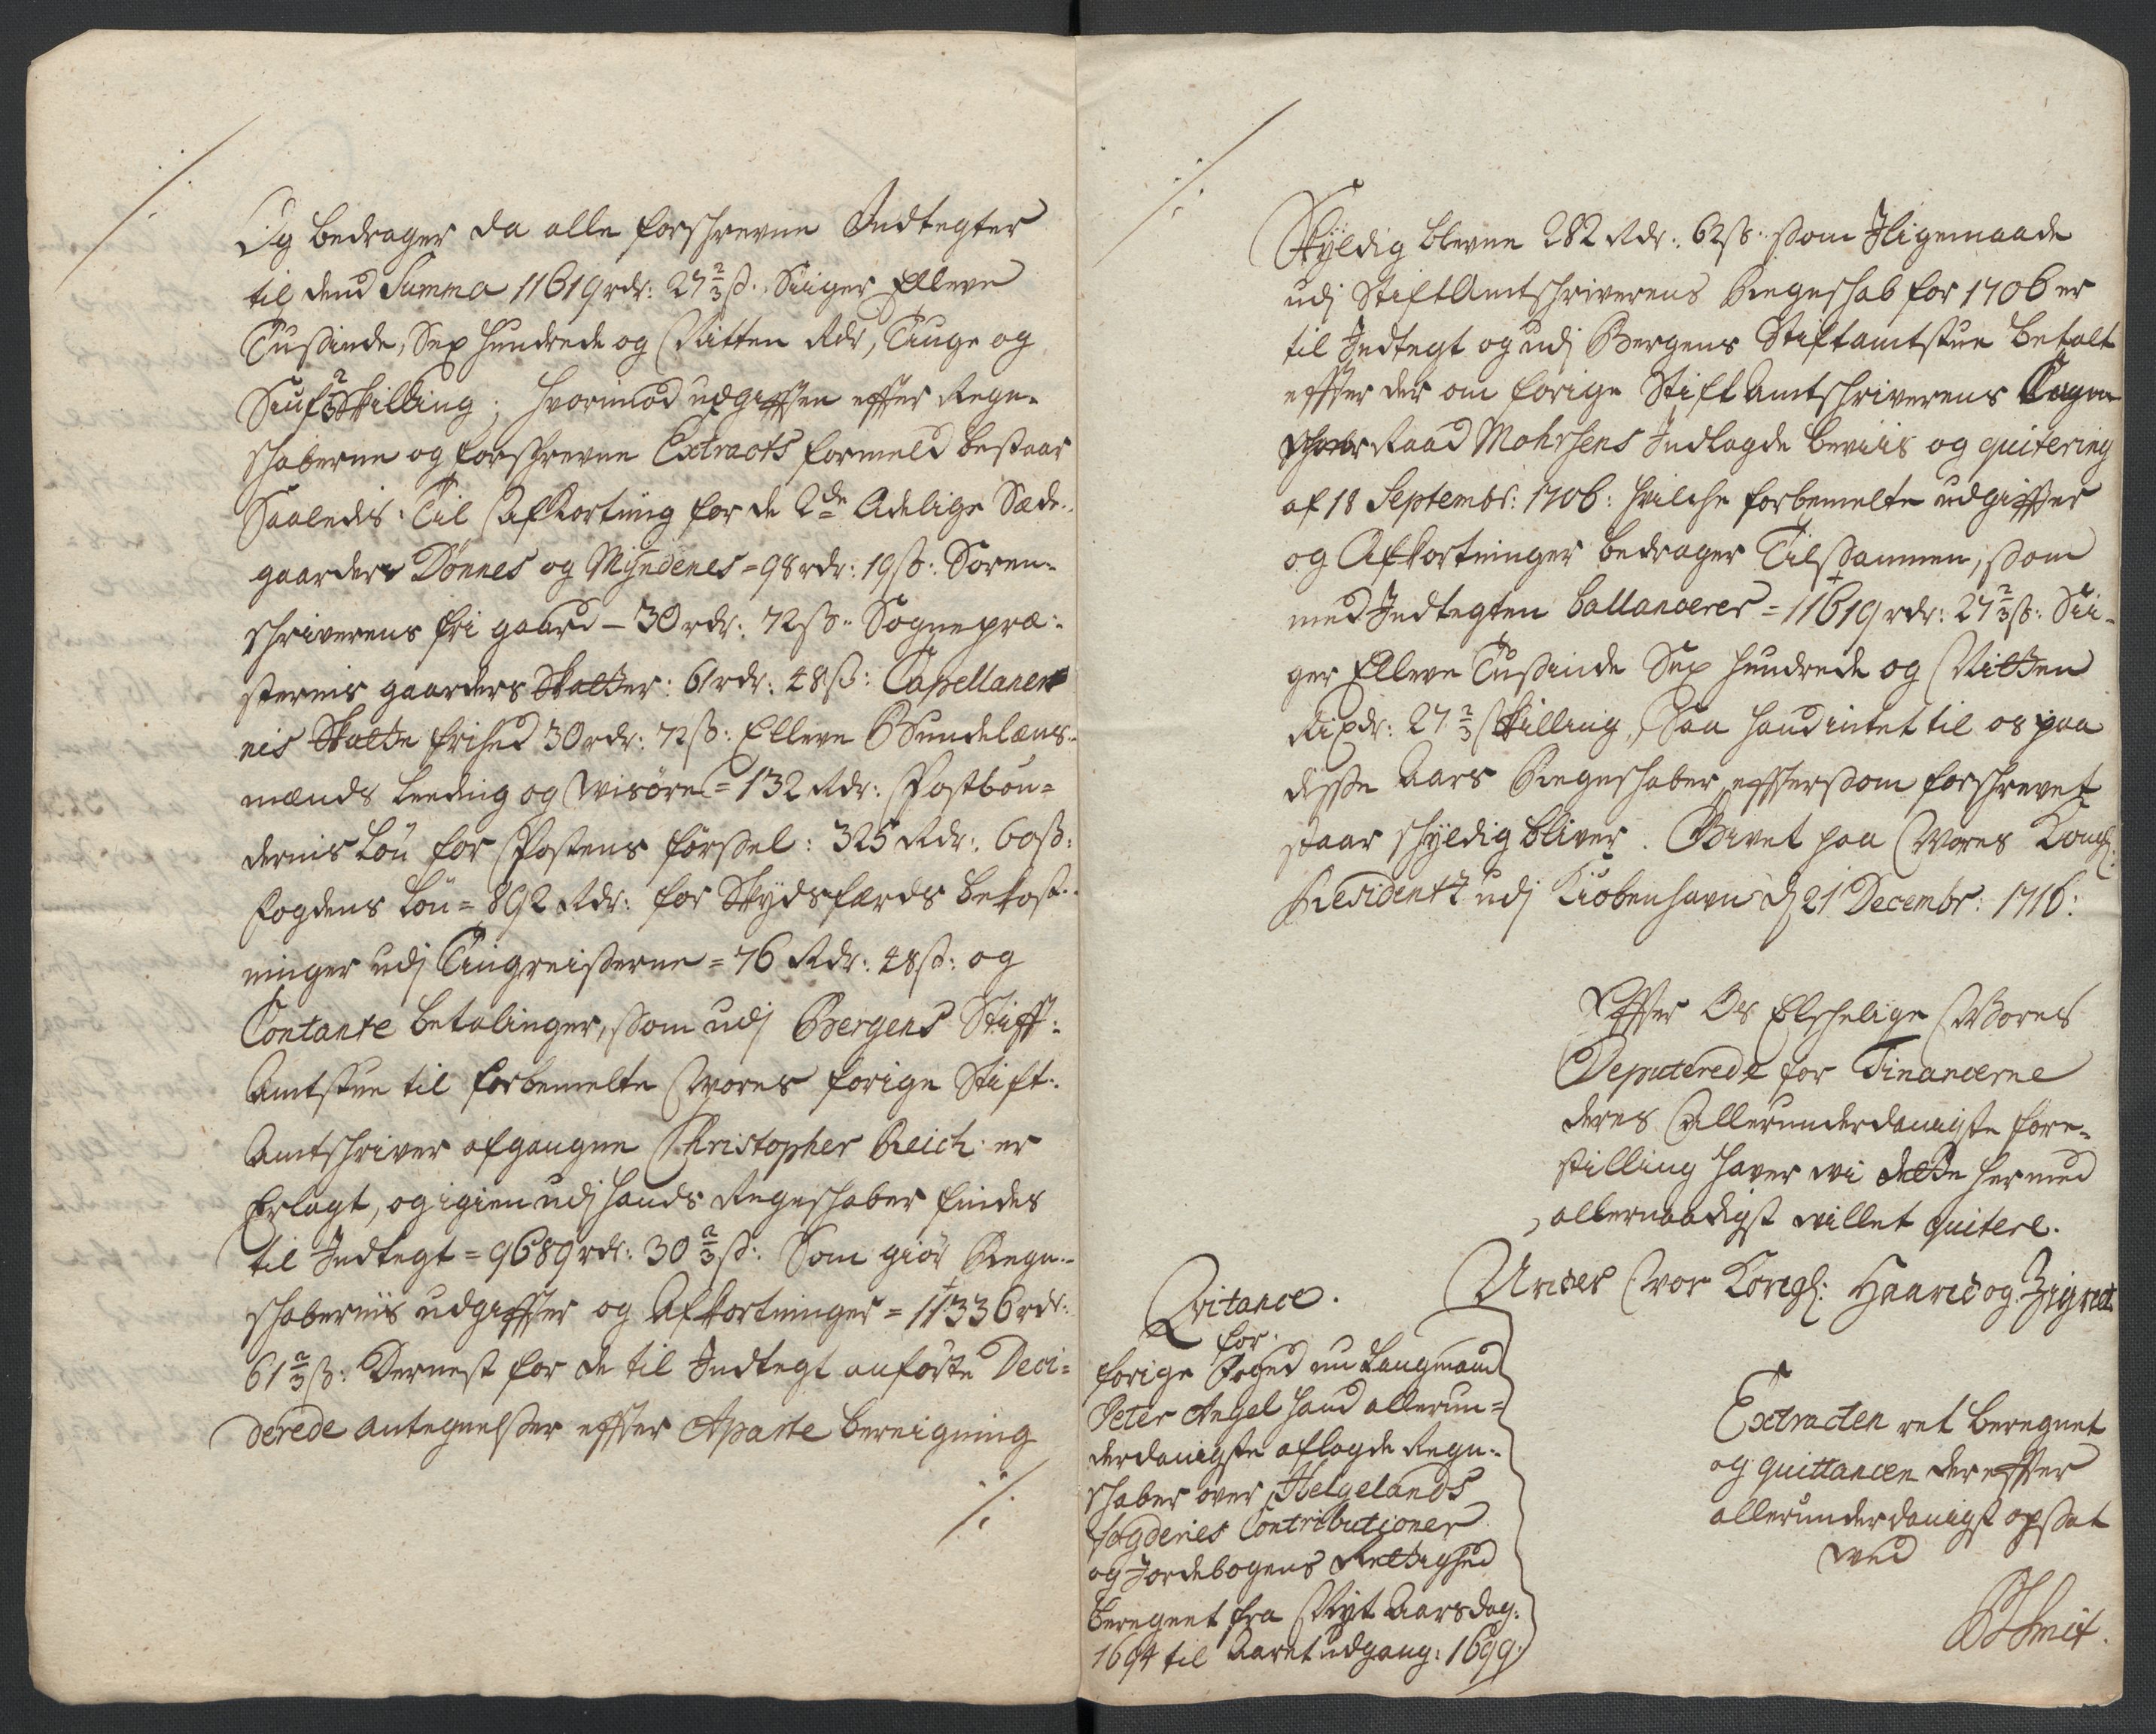 Og bedrager da alle forschrevne Indtegter
til dend Summa 11619 rdr: 27 2/3 ß. Siiger Elleve
Tusinde, Sex Hundrede og Nitten Rdr, Tiuge og
Siuf 2/3 Skilling; Hvorimod udgifften effter Regn-
schaberne og forschrevne Extracts formeld bestaar
Saaledis: Til Afkortning for de 2de Adelige Sæde-
gaarder Dønnes og Mÿndenes = 98 rdr: 19 ß: Soren-
schriverens fri gaard - 30 rdr: 72 ß: Sognepræ-
sternis gaarders Skatter: 61 rdr: 48 ß: Capellaner
nis Skatte frihed 30 rdr: 72 ß: Elleve Bundelæns-
mænds Leeding og Wisøre = 132 Rdr: Postbøn-
dernis Løn for Postens førssel: 325 Rdr: 60 ß:
fogdens Løn = 892 Rdr: for Skydsfærds bekost-
ninger udj Tingreiserne = 76 Rdr: 48 ß: og
Contante betalinger, som udj Bergens Stiff-
Amtstue til forbemelte Wores forige Stift-
Amtschriver afgangne Christopher Reich er
Erlagt, og igien udj hands Regnschaber findes
til Indtegt = 9689 rdr: 30 2/3 ß: Som giør Regn-
schabernis udgiffter og Afkortninger = 11336 rdr:
61 2/3 ß: Dernest for de til Indtegt anførte Deci-
derede antegnelser effter Aparte bereigning
./.
./.
Skyldig blevne 282 Rdr: 62 ß: som Iligemaade
udj Stiftamtschriverens Regnschab for 1706 er
til Indtegt og udj Bergens Stiftamtstue betalt
effter der om forige Stift Amtschriverens
Raad Mohrsens Indlagde beviis og quitering
af 18 Septembr: 1706: Hvilche forbemelte udgiffter
og Afkortninger bedrager Tilsammen, som
med Indtegten ballancerer = 11619 rdr: 27 2/3 ß: Sii-
ger Elleve Tusinde Sex hundrede og Nitten
Rixdr: 27 2/3 Skilling, Saa hand intet til os paa
disse Aars Regnschaber, efftersom forschrevet
staar schyldig bliver. Givet paa Wores Kongl:
Residentz udj Kiøbenhavn d 21 Decembr: 1716:
Effter Os Elschelige Wores
Deputerede for Financerne
deres Allerunderdanigste fore-
stilling haver wi dette hermed
allernaadigst willet quitere.
Under Wor Kongl: Haand og Zignet
Qvitance.
for
forige Foged nu Laugmand
Peter Angel hand allerun-
derdanigste aflagde Regn-
schaber over Helgelands
fogderies Contributioner
og Jordebogens Rettighed
beregnet fra Nyt Aarsdag
1694 til Aaret udgang: 1699.
Extracten ret beregnet
og quittancen dereffter
allerunderdanigst opsat
wed
Smit.